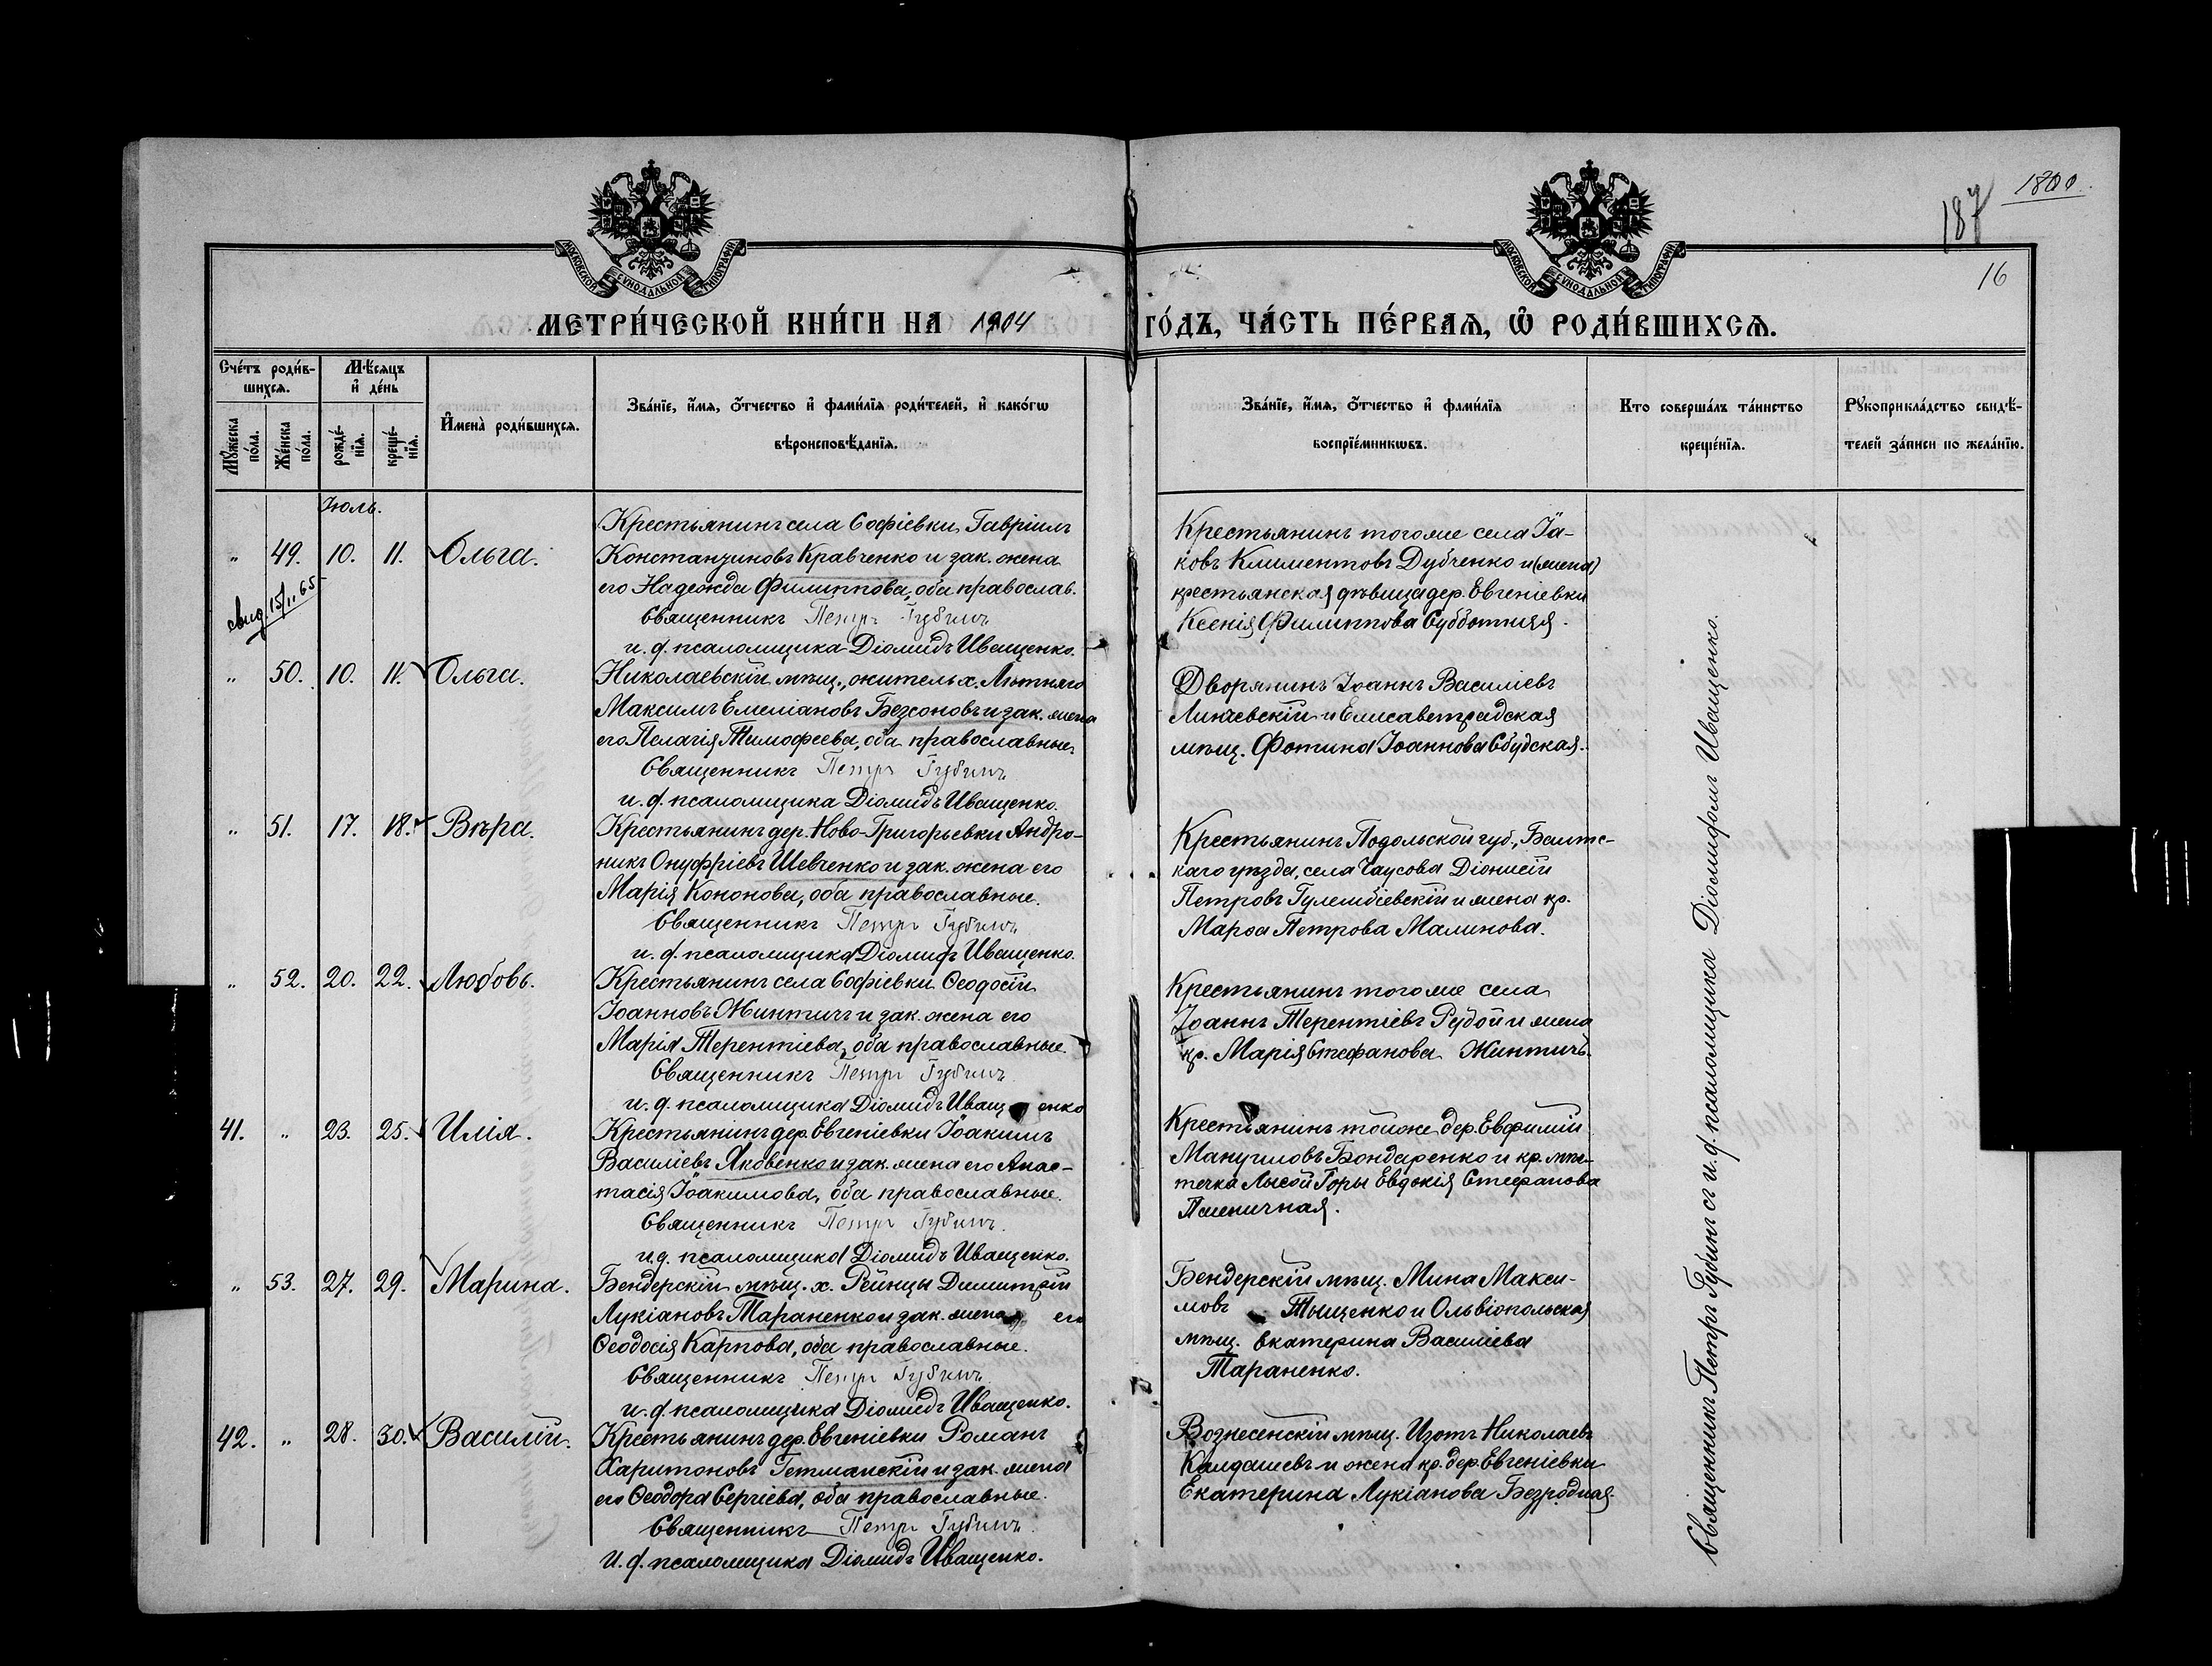 1800.
187
16
МОСКОВСКОЙ СѴНОДАЛЬНОЙ ТИПОГРАФІИ
МОСКОВСКОЙ СѴНОДАЛЬНОЙ ТИПОГРАФІИ
МЕТРИ́ЧЕСКОЙ КНИ́ГИ НА 1904 ГО́ДЪ, ЧА́СТЬ ПЕ́РВАЯ, Ѡ҆ РОДИ́ВШИХСЯ.
Сче́тъ роди́в-
шихся.
Мꙋ́жеска по́ла.
Же́нска по́ла.
Мѣ́сяцъ
и҆ де́нь
рожде́-
нїя.
креще́-
нїя.
И҆мена̀ роди́вшихся.
Зва́нїе, и҆́мя, ѻ҆́тчество и҆ фами́лїя роди́телей, и҆ како́гѡ
вѣроисповѣ́данїя.
Зва́нїе, и҆́мя, ѻ҆́тчество и҆ фами́лїя
воспрїе́мникѡвъ.
Кто соверша́лъ та́инство
креще́нїя.
Рꙋкоприкла́дство свидѣ́-
телей за́писи по жела́нїю.
Іюль.
„ 49. 10. 11. Ольга.
свид. 15/II 65
Крестьянинъ села Софіевки Гавріилъ
Константиновъ Кравченко и зак. жена
его Надежда Филиппова, оба православ.
Священникъ Петръ Губинъ
и. д. псаломщика Діомидъ Иващенко.
Крестьянинъ того же села Іа-
ковъ Климентовъ Дубченко и (жена)
крестьянская дѣвица дер. Евгеніевки
Ксенія Филиппова Субботняя.
„ 50. 10. 11. Ольга.
Николаевскій мѣщ., житель х. Лютняго
Максимъ Емеліановъ Безсоновъ и зак. жена
его Пелагія Тимофеева, оба православные
Священникъ Петръ Губинъ
и. д. псаломщика Діомидъ Иващенко.
Дворянинъ Іоаннъ Василіевъ
Линчевскій и Елисаветградская
мѣщ. Фотина Іоаннова Сбудская.
„ 51. 17. 18. Вѣра.
Крестьянинъ дер. Ново-Григорьевки Андро-
никъ Онуфріевъ Шевченко и зак. жена его
Марія Кононова, оба православные.
Священникъ Петръ Губинъ
и. д. псаломщика Діомидъ Иващенко.
Крестьянинъ Подольской губ., Балтс-
каго уѣзда, села Чаусова Діонисій
Петровъ Гулембіевскій и жена кр.
Марѳа Петрова Малинова.
„ 52. 20. 22. Любовь.
Крестьянинъ села Софіевки Ѳеодосій
Іоанновъ Жинтичъ и зак. жена его
Марія Терентіева, оба православные.
Священникъ Петръ Губинъ
и. д. псаломщика Діомидъ Иващенко
Крестьянинъ того же села
Іоаннъ Терентіевъ Рудой и жена
кр. Марія Стефанова Жинтичъ.
41. „ 23. 25. Илія.
Крестьянинъ дер. Евгеніевки Іоакимъ
Василіевъ Яковенко и зак. жена его Анас-
тасія Іоакимова, оба православные.
Священникъ Петръ Губинъ.
и. д. псаломщика Діомидъ Иващенко.
Крестьянинъ той же дер. Евфимій
Мануиловъ Бондаренко и кр. мѣс-
течка Лысой Горы Евдокія Стефанова
Пшеничная.
„ 53. 27. 29. Марина.
Бендерскій мѣщ. х. Рейнцы Димитрій
Лукіановъ Тараненко и зак. жена его
Ѳеодосія Карпова, оба православные.
Священникъ Петръ Губинъ.
и. д. псаломщика Діомидъ Иващенко.
Бендерскій мѣщ. Мина Макси-
мовъ Тыщенко и Ольвіопольская
мѣщ. Екатерина Василіева
Тараненко.
42. „ 28. 30. Василій.
Крестьянинъ дер. Евгеніевки Романъ
Харитоновъ Гетманскій и зак. жена
его Ѳеодора Сергіева, оба православные.
Священникъ Петръ Губинъ.
И. д. псаломщика Діомидъ Иващенко.
Вознесенскій мѣщ. Изотъ Николаевъ
Калдашевъ и жена кр. дер. Евгеніевки
Екатерина Лукіанова Безродная.
Священникъ Петръ Губинъ съ и. д. псаломщика Діомидомъ Иващенко.